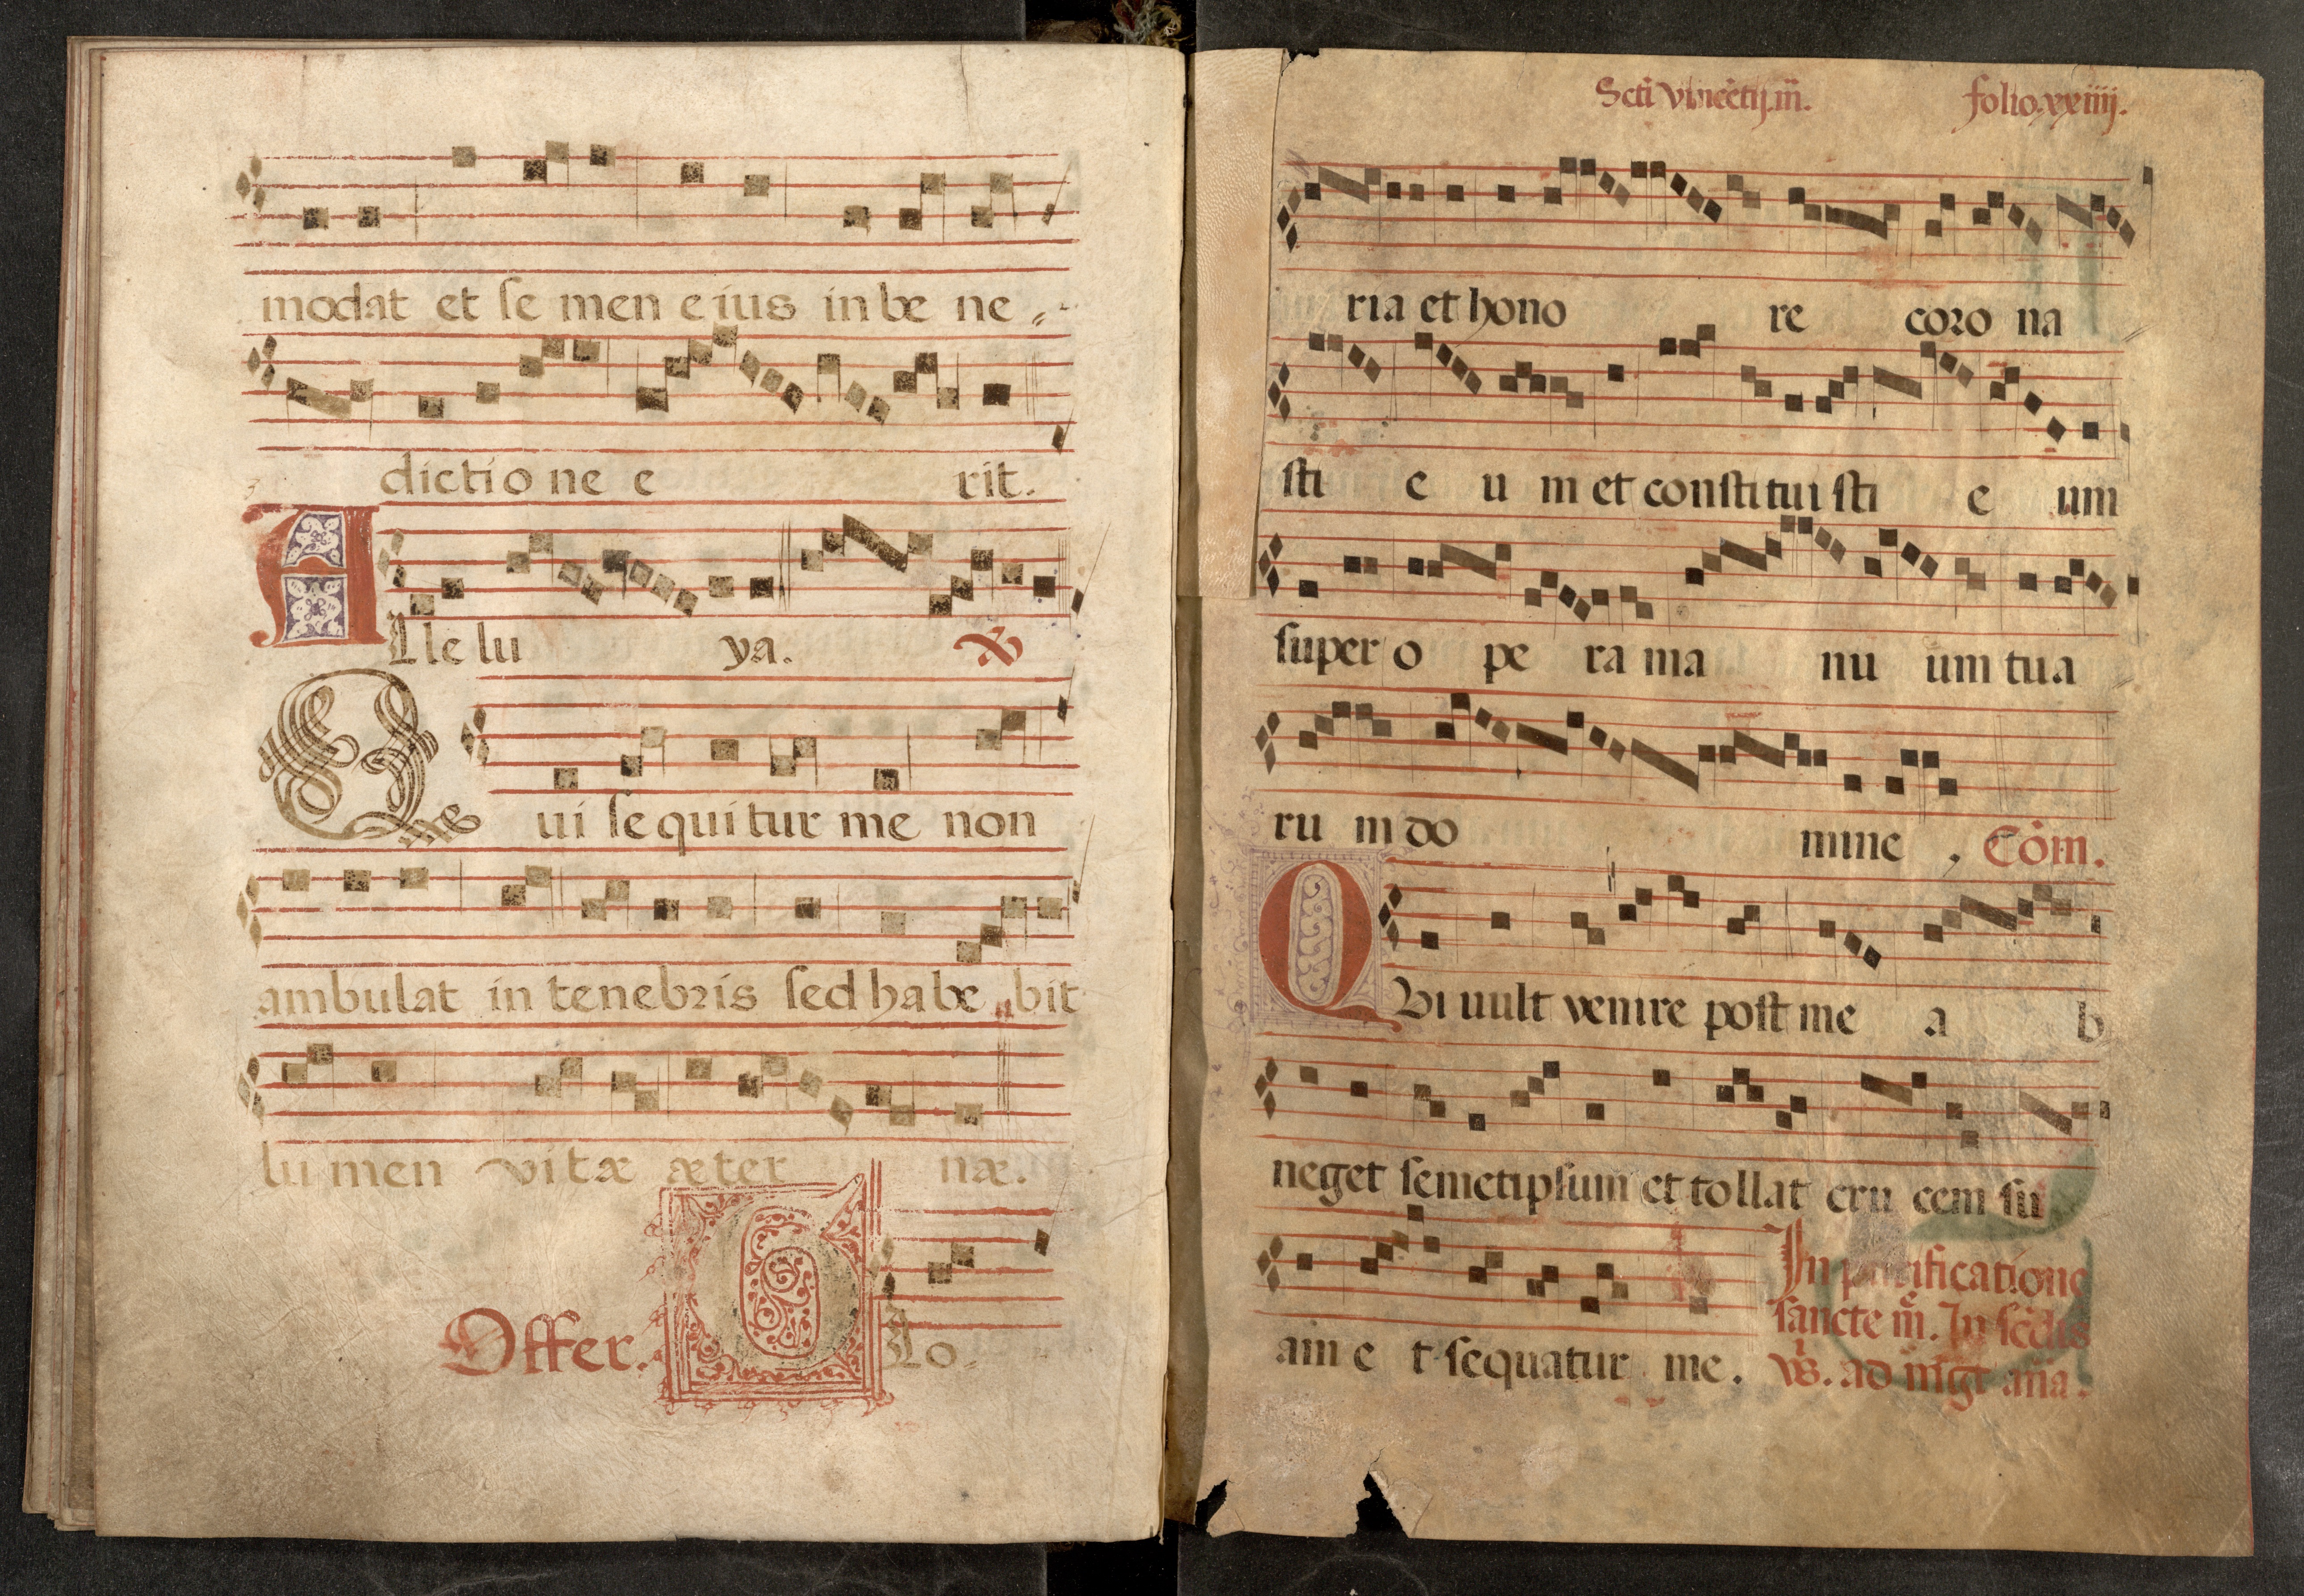 modat et ſe men e ius in be ne
dictio ne e rit.
A
Lle lu ya. ℣
Q
ui ſe qui tur me non
ambulat in tenebris ſed ha be bit
lu men vi tæ æ ter næ.
Offer. G Lo
Scti vincētij.m̄. folio.xxiiij.
ria et hono re coro na
ſti e u m et conſti tui ſti e um
ſuper o pe ra ma nu um tua
ru m do mine , Com̄.
Q
Vi uult venire poſt me a b
neget ſemetipſum et tollat cru cem ſu
am e t ſequatur me.
In purificatione
ſancte m̄. In
ad